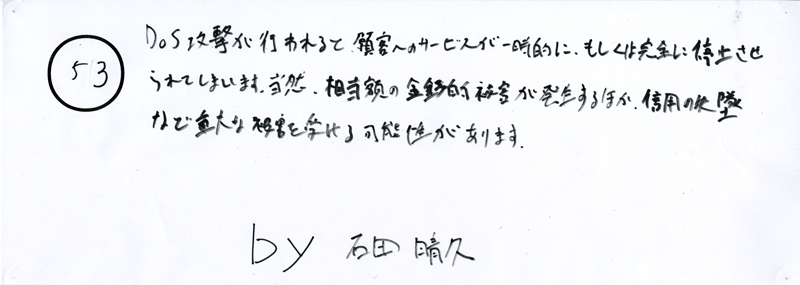 53
DoS攻撃が行われると顧客へのサービスが一時的に、もしくは完全に停止させ
られてしまいます。当然、相当額の金銭的被害が発生するほか、信用の失墜
など重大な被害を受ける可能性があります。
by 石田晴久